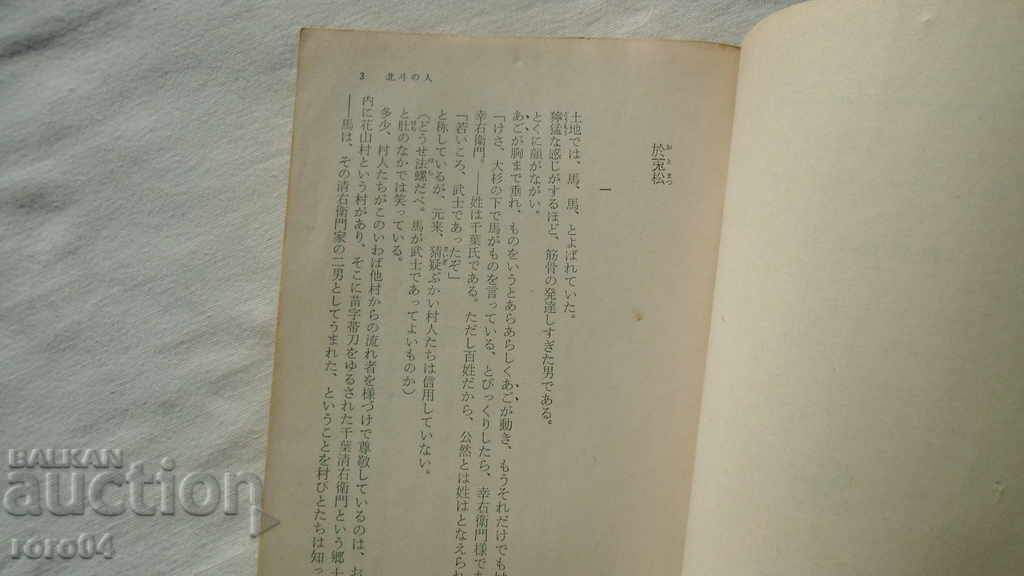 3　北斗の人
於兎松
おとまつ
一
土地では、馬、馬、とよばれていた。
獰猛な感じがするほど、筋骨の発達しすぎた男である。
とくに顔がながい。
あごが胸まで垂れ、ものをいうとあらあらしくあごが動き、もうそれだけでも
「けさ、大杉の下で馬がものを言っている、とびっくりしたら、幸右衛門様であ
幸右衛門。――姓は千葉氏である。ただし百姓だから、公然とは姓はとなえられ
「若いころ、武士であったぞ」
と称しているが、元来、猜疑ぶかい村人たちは信用していない。
(どうせ法螺だべ。馬が武士であってよいものか)
と肚のなかでは笑っている。
多少、村人たちがこのいわば他村からの流れ者を様づけで尊敬しているのは、お
内に花山村という村があり、そこに苗字帯刀をゆるされた千葉清右衛門という郷士
――馬は、その清右衛門家の二男としてうまれた、ということを村びとたちは知っ
BALKAN
auction
roro04